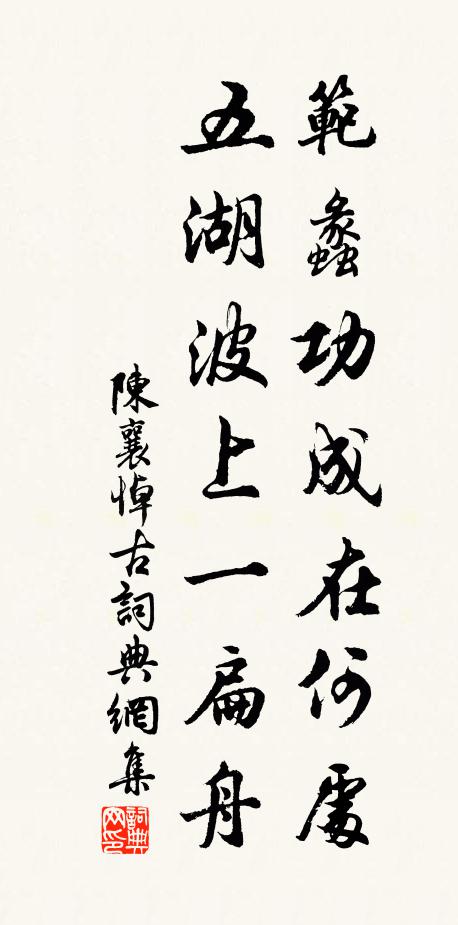 範蠡功成在何處
五湖波上一扁舟
陳襄悼古詞典網集
詞典网印